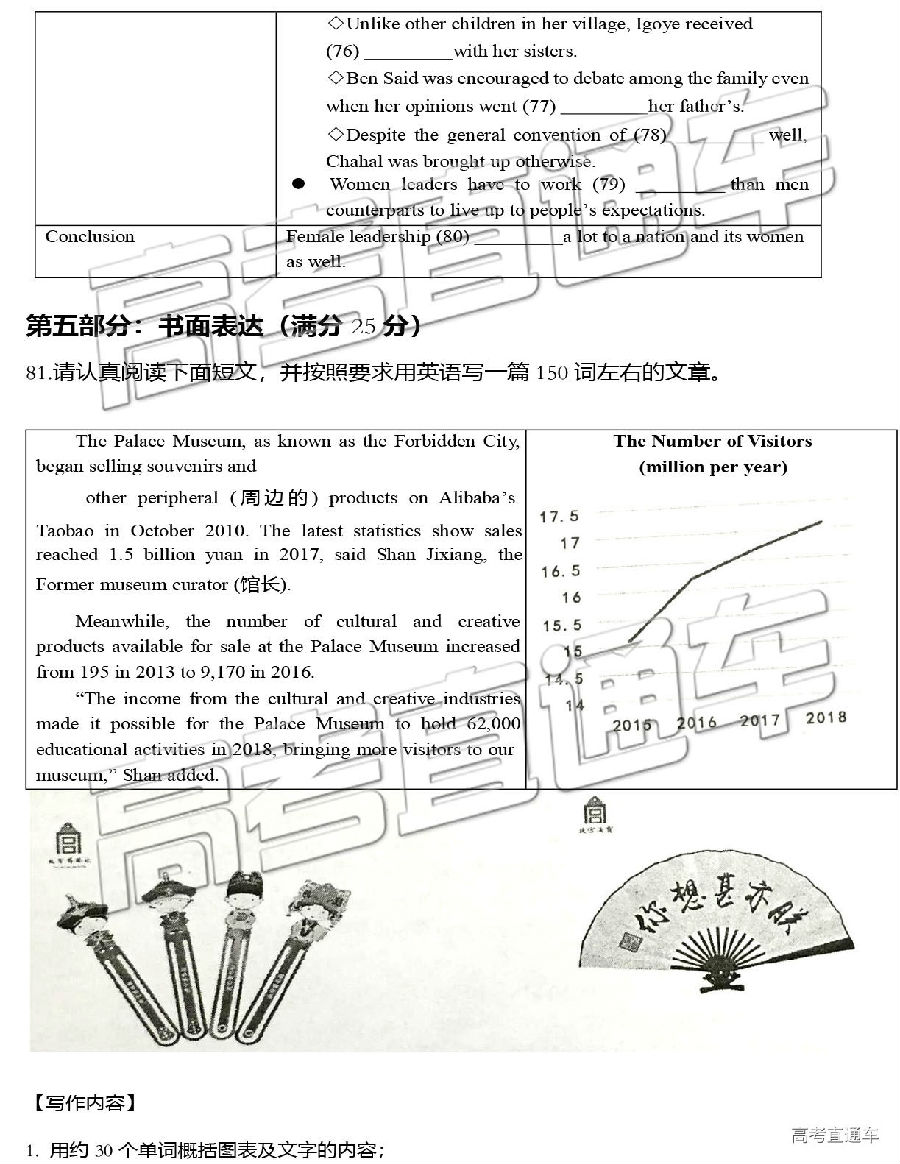 ◇Unlike other children in her village, Igoye received
(76) __________with her sisters.
◇Ben Said was encouraged to debate among the family even
when her opinions went (77) __________her father's.
◇Despite the general convention of (78) __________ well,
Chahal was brought up otherwise.
● Women leaders have to work (79) __________than men
counterparts to live up to people's expectations.
Conclusion
Female leadership (80) __________a lot to a nation and its women
as well.
第五部分：书面表达（满分 25 分）
81.请认真阅读下面短文，并按照要求用英语写一篇 150 词左右的文章。
The Palace Museum, as known as the Forbidden City,
began selling souvenirs and
other peripheral (周边的) products on Alibaba's
Taobao in October 2010. The latest statistics show sales
reached 1.5 billion yuan in 2017, said Shan Jixiang, the
Former museum curator (馆长).
Meanwhile, the number of cultural and creative
products available for sale at the Palace Museum increased
from 195 in 2013 to 9,170 in 2016.
“The income from the cultural and creative industries
made it possible for the Palace Museum to hold 62,000
educational activities in 2018, bringing more visitors to our
museum,” Shan added.
The Number of Visitors
(million per year)
17.5
17
16.5
16
15.5
15
14.5
14
2015 2016 2017 2018
你想甚亦朕
【写作内容】
1. 用约 30 个单词概括图表及文字的内容；
高考直通车
高考直通车
高考直通车